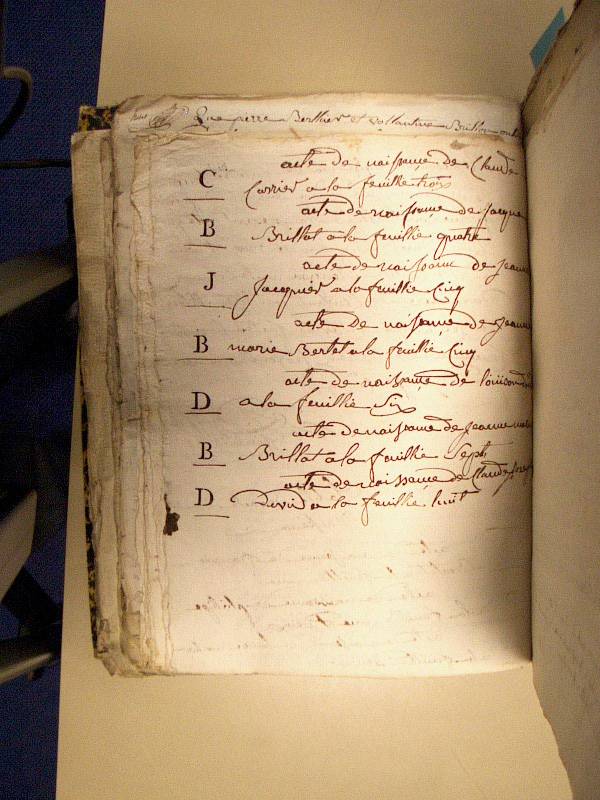 que pierre Berthier et vallantine Brillon
acte de naissance de Claude
C
Carrier a la feuillie trois
acte de naissance de jacque
B
Brillat a la feuillie quatre
acte de naissance de jeanne
J
Jacquier a la feuillie Cinq
acte de naissance de jeanne
B marie Bertet a la feuillie Cinq
acte de naissance de
D a la feuillie Six
acte de naissance de jeanne
B Brillat a la feuillie Sept
acte de naissance de Claude
D David a la feuillie huit